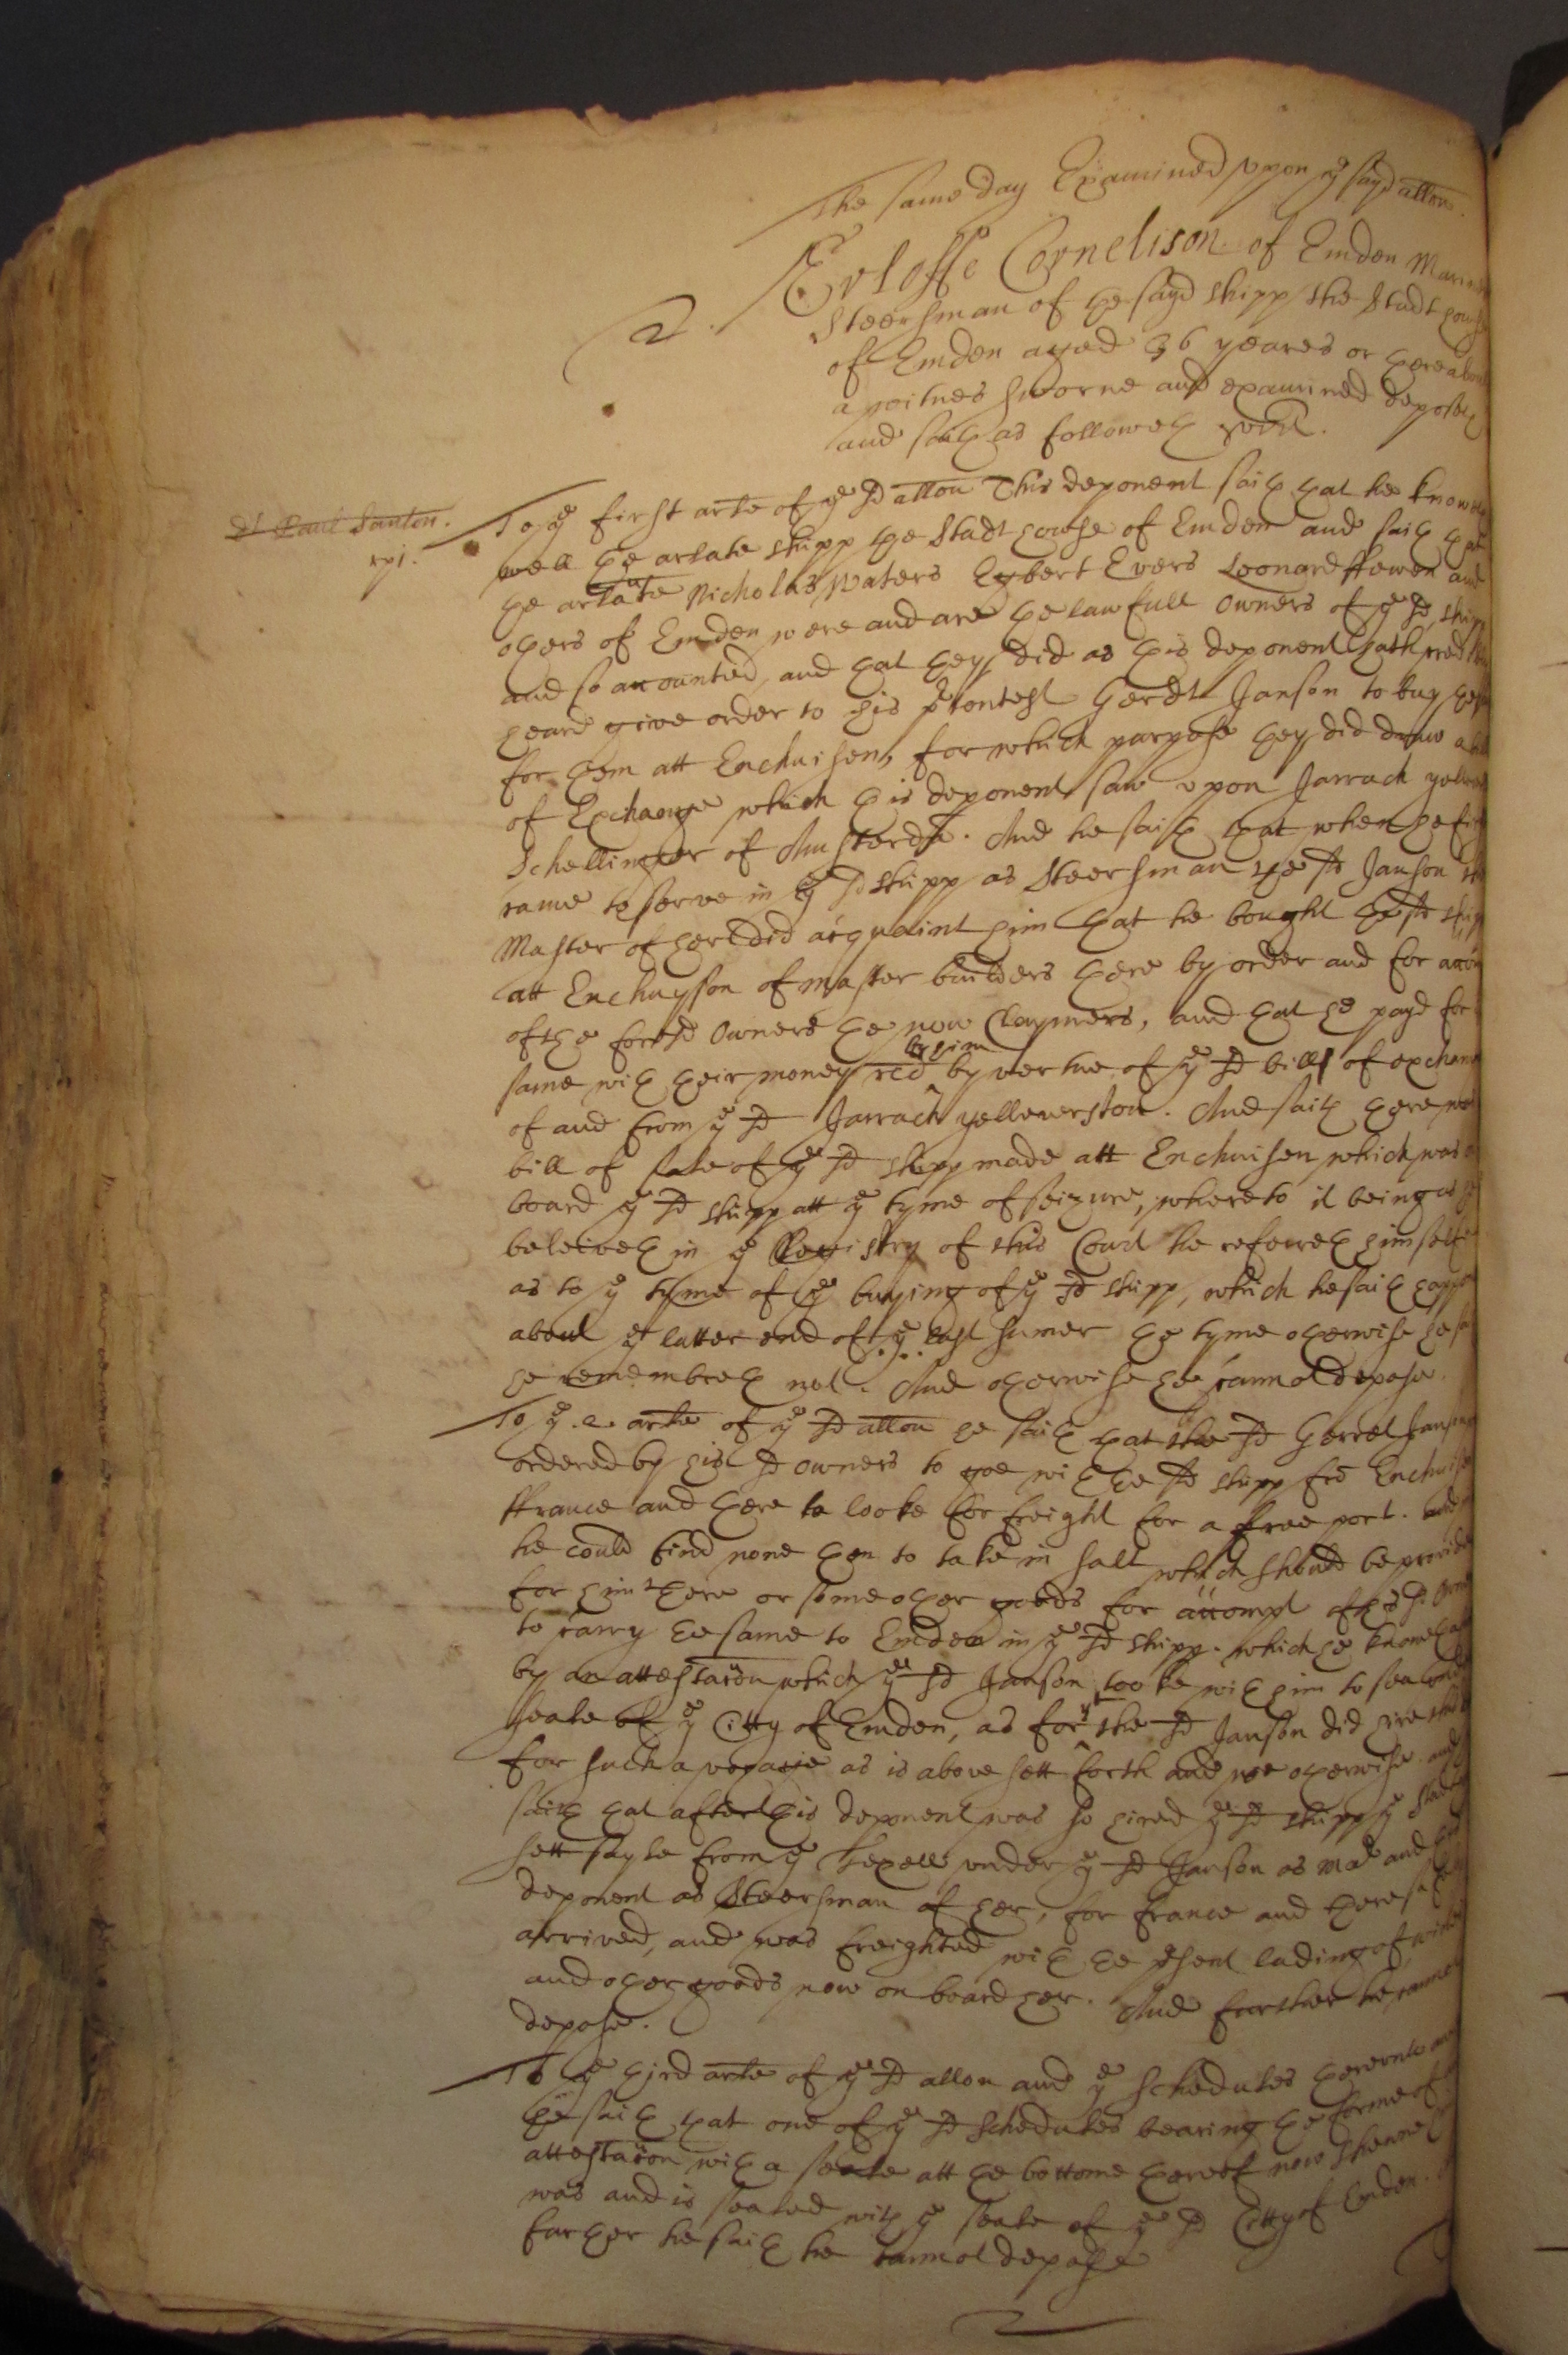 The same day Examined upon ye sayd allon.
2. Eyloffe Cornelison of Emden Marriner
Steersman of the sayd shipp the Stadt house
of Emden aged 36 yeares or thereabout
a witnes sworne and examined deposeth
and saith as followeth vizt.
To ye first arle of ye sd allon This deponent saith that he knoweth
rp. j.
well the arlate shipp the Stadt house of Emden and saith that
the arlate Nicholas Waters Egbert Evers Leonard ffewen and
others of Emden were and are the lawfull Owners of ye sd shipp
and so accounted, and that they did as this deponent hath
heard give order to his Contest Gerdt Janson to buy her
for them att Enchuisen, for which purpose they did draw a bill
of Exchange which this deponent saw upon Jarrach
Schellinger of Amsterda. And he saith that when he first
came to serve in ye sd shipp as Steersman the sd Janson the
Master of her did acquaint him that he bought the sd shipp
att Enchuyson of master builders there by order and for accon
of the foresd Owners the now Claymers, and that he payd for
same with their money recd by him by vertue of ye sd bills of exchange
of and from ye sd Jarrach yelleuerston. And saith there was
bill of sale of ye sd shipp made att Enchuisen which was on
board ye sd shipp att ye tyme of seizure, whereto it being as he
beleiveth in ye Registry of this Court he referreth himselfe
as to ye tyme of ye buying of ye sd shipp, which he saith
about ye latter end of ye last sumer the tyme otherwise he
he remembreth not. And otherwise he cannot depose.
To ye .2. arle of ye sd allon he saith that the sd Gerret Janson
ordered by his sd owners to goe with the sd shipp fro Enchuisen
ffrance and there to looke for freight for a free port. and
he could find none then to take in salt which should be provided
for him there or some other goods for accompt of his sd
to carry the same to Emden in ye sd shipp. which he knoweth
by an attestacon which ye sd Janson tooke with him to sea
seale of ye Citty of Emden, as for yt the sd Janson did hire
for such a voyage as is above sett forth and not otherwise. and
saith that after this deponent was so hired ye sd shipp ye Stadt
sett sayle from ye Texell under ye sd Janson as Mar and
deponent as Steersman of her, for France and there
arrived, and was freighted with the psent lading of
and other goods now on board her. And further he cannot
depose.
To ye third arle of ye sd allon and ye Schedules
he saith that one of ye sd schedules bearing the forme of
attestacon with a seale att the bottome thereof now shewne
was and is sealed with ye seale of ye sd Citty of Emden.
further he saith he cannot depose